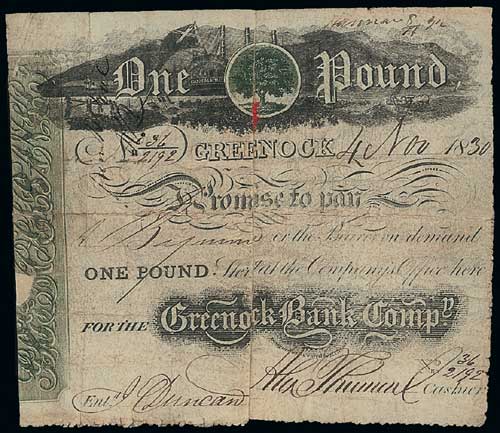 One Pound
No 36/2192 GREENOCK 4 Nov 1830
Promise to pay
or the Bearer on demand
ONE POUND Sterg. at the Company's Office here
FOR THE Greenock Bank Compy.
No 36/2192
Entd. J Duncan Cashier